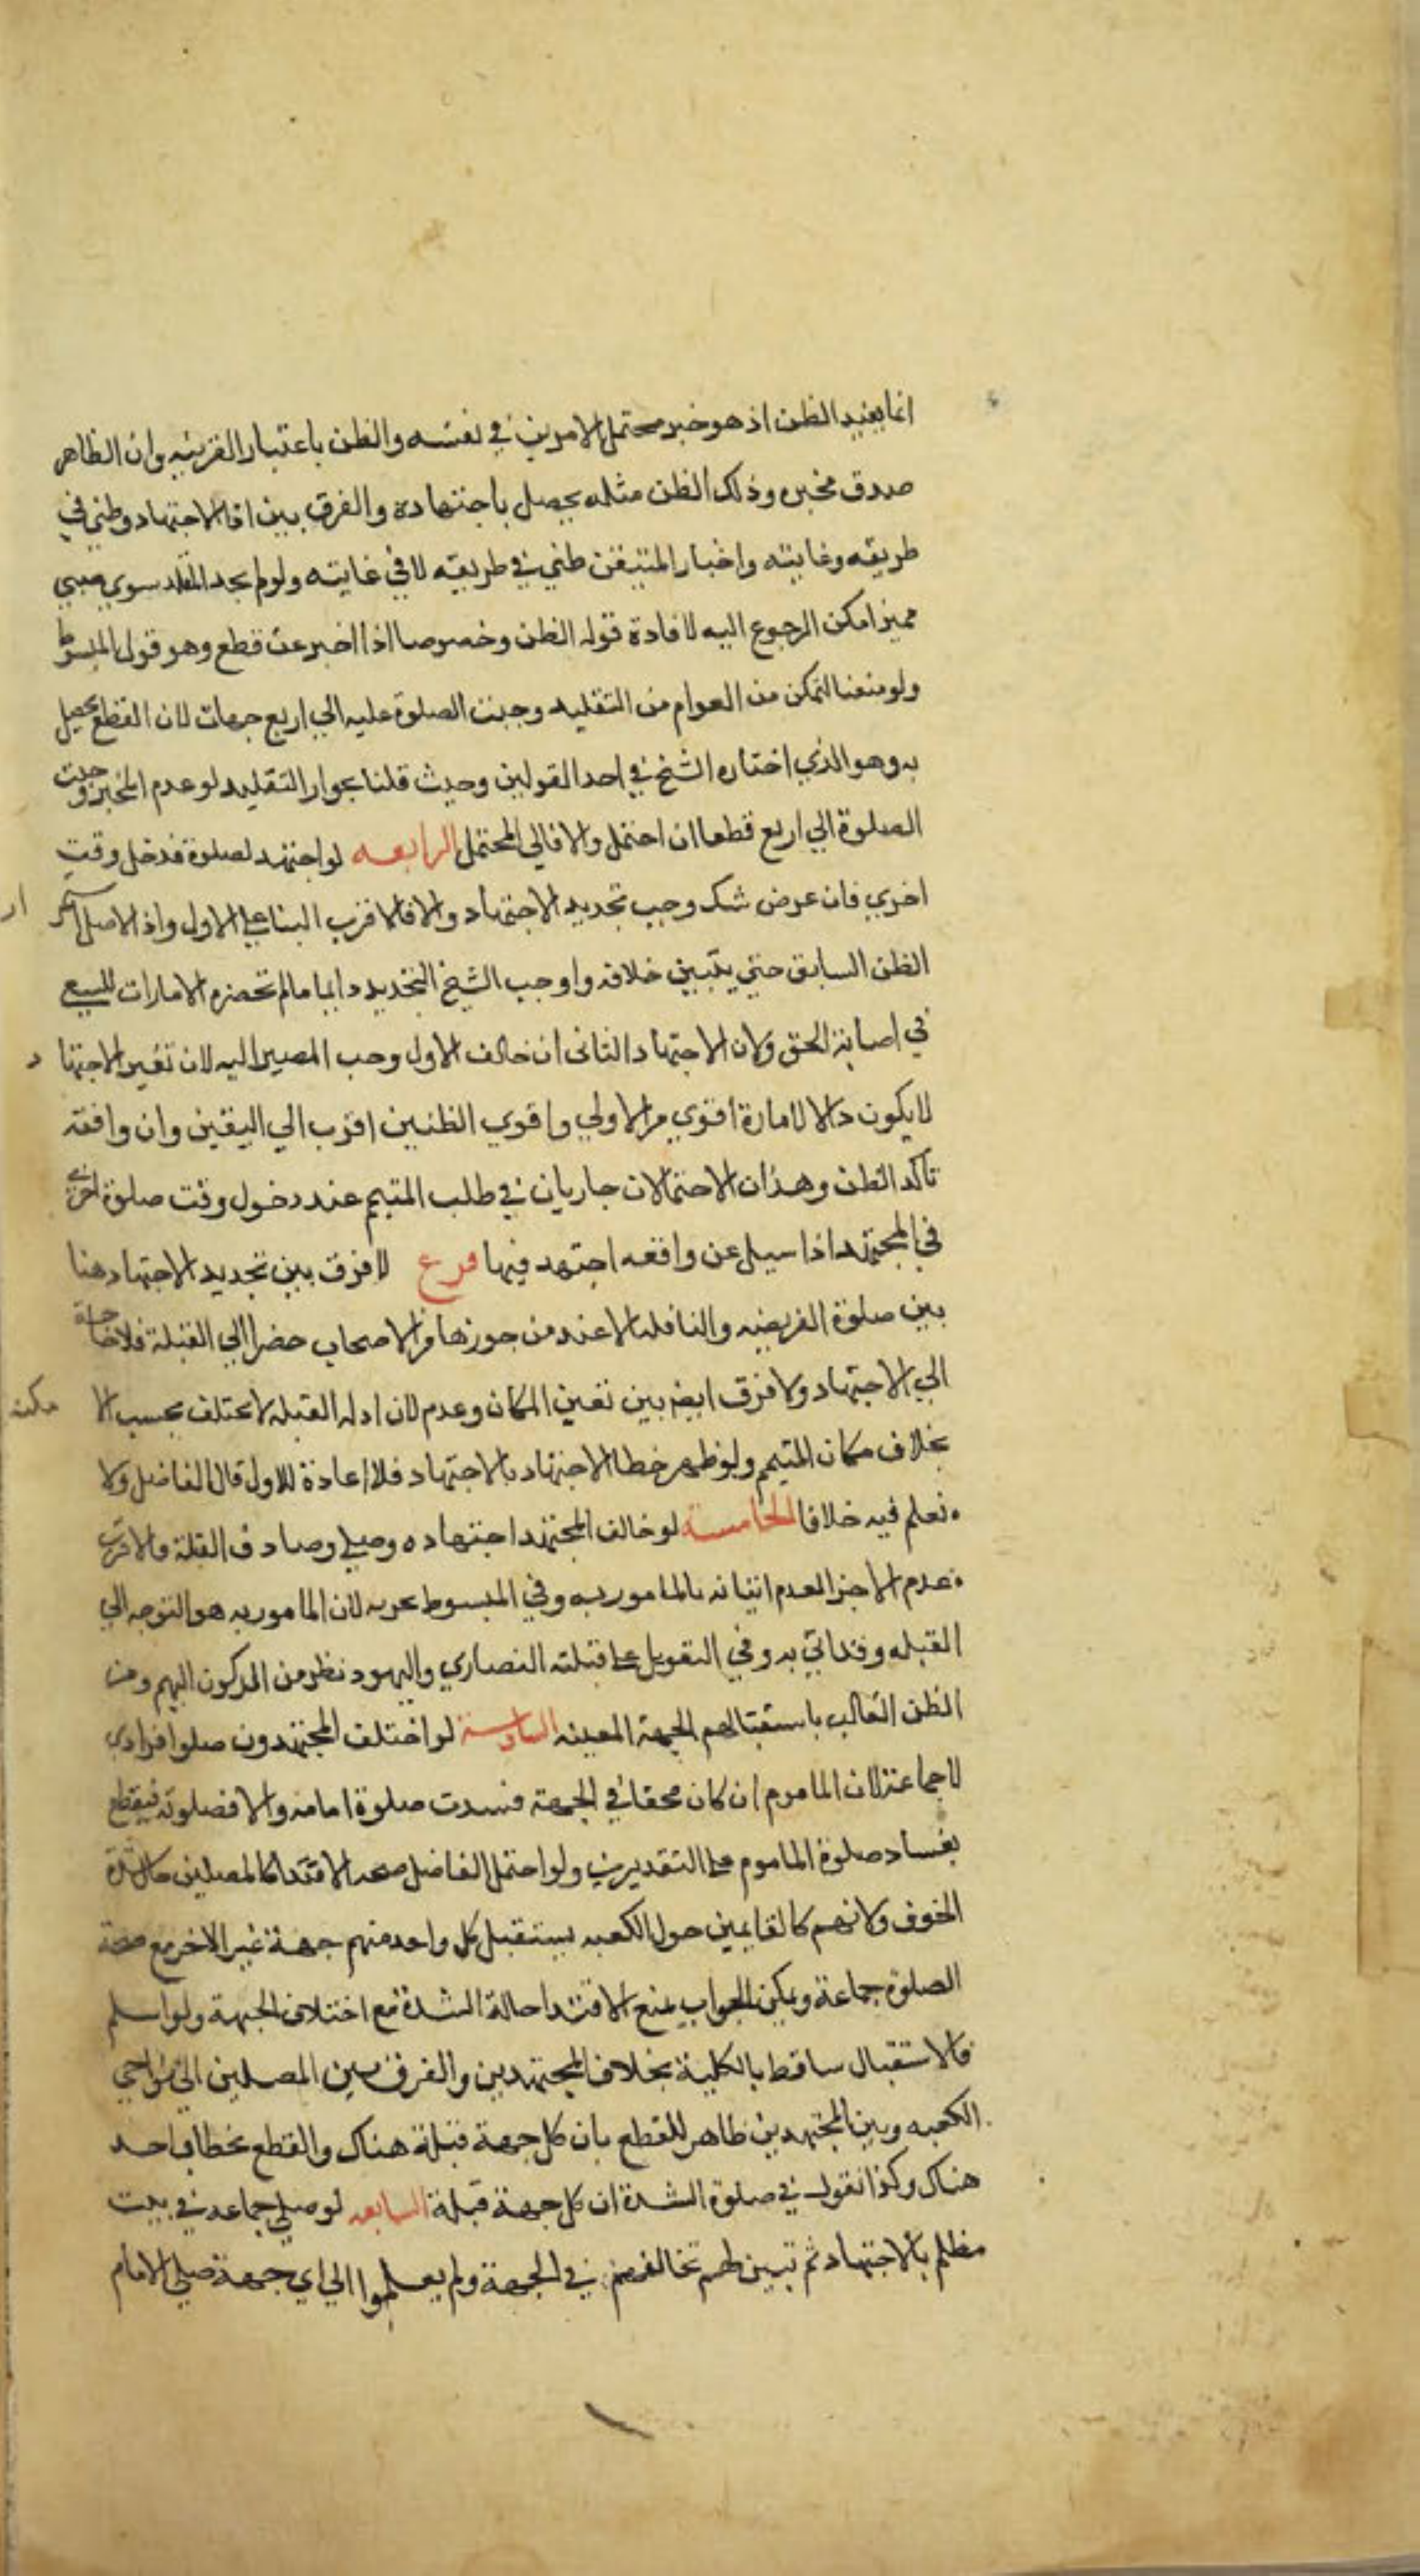 انما يفيد الظن اذ هو خبر محتمل الامرين في نفسه والظن باعتبار القرينه وان الظاهر
صدق مخبره وذلك الظن مثله يحصل باجتهاده والفرق بين اذ الاجتهاد وظني في
طريقه وغايته واخبار المتيقن ظني في طريقه لا في غايته ولو لم يجد المقلد سوي صبي
مميز امكن الرجوع اليه لافادة قوله الظن وخصوصا اذا اخبر عن قطع وهو قول المبسوط
ولو منعنا التمكن من العوام من التقليد وجبت الصلوة عليه الي اربع جهات لان القطع يحصل
به وهو الذي اختاره الشيخ في احد القولين وحيث قلنا بجواز التقليد لو عدم المخبر وجبت
الصلوة الي اربع قطعا ان احتمل والا فالي المحتمل الرابعه لو اجتهد لصلوة فدخل وقت
اخري فان عرض شك وجب تجديد الاجتهاد والا فالاقرب البنا علي الاول واذ الاصل استمرار
الظن السابق حتي يتبين خلافه واوجب الشيخ التجديد دايما ما لم تحضره الامارات للسعي
في اصابة الحق ولان الاجتهاد الثاني ان خالف الاول وجب المصير اليه لان تغير الاجتهاد
لا يكون دالا لامارة اقوي من الاولي واقوي الظنين اقرب الي اليقين وان وافقه
تاكد الظن وهذان الاحتمالان جاريان في طلب المتيمم عند دخول وقت صلوة اخري
في المجتهد اذا سيل عن واقعه اجتهد فيها فرع لا فرق بين تجديد الاجتهاد هنا
بين صلوة الفريضه والنافله الا عند من جوزها من الاصحاب حضرا الي القبلة فلا حاجة
الي الاجتهاد ولا فرق ايضا بين تغير المكان وعدم لان ادله القبله لا تختلف بحسب الامكنه
بخلاف مكان المتيمم ولو ظهر خطا الاجتهاد بالاجتهاد فلا اعادة للاول قال الفاضل ولا
نعلم فيه خلافا الخامسة لو خالف المجتهد اجتهاده وصلي وصادف القبلة فالاقرب
عدم الاجزا لعدم اتيانه بالمامور به وفي المبسوط يجزيه لان المامور به هو التوجه الي
القبله وقد اتي به وفي التعويل علي قبلته النصاري واليهود نظر من الركون اليهم ومن
الظن الغالب باستقبالهم الجهة المعينه السادسة لو اختلف المجتهدون صلوا فرادي
لا جماعة لان الماموم ان كان محقا في الجهة فسدت صلوة امامه والا فصلوته فيقطع
بفساد صلوة الماموم علي التقديرين ولو احتمل الفاضل صحه الاقتدا كالمصلين حال شدة
الخوف ولانهم كالقايمين حول الكعبه يستقبل كل واحد منهم جهة غير الاخر مع صحة
الصلوة جماعة ويمكن الجواب بمنع الاقتدا حالة الشدة مع اختلاف الجهة ولو اسلم
فالاستقبال ساقط بالكلية بخلاف المجتهدين والفرق بين المصلين الي نواحي
الكعبه وبين المجتهدين ظاهر للقطع بان كل جهة قبلة هناك والقطع بخطا واحد
هناك وكذا نقول في صلوة الشدة ان كل جهة قبلة السابعه لو صلي جماعه في بيت
مظلم بالاجتهاد ثم تبين لهم تخالفهم في الجهة ولم يعلموا الي اي جهة صلي الامام